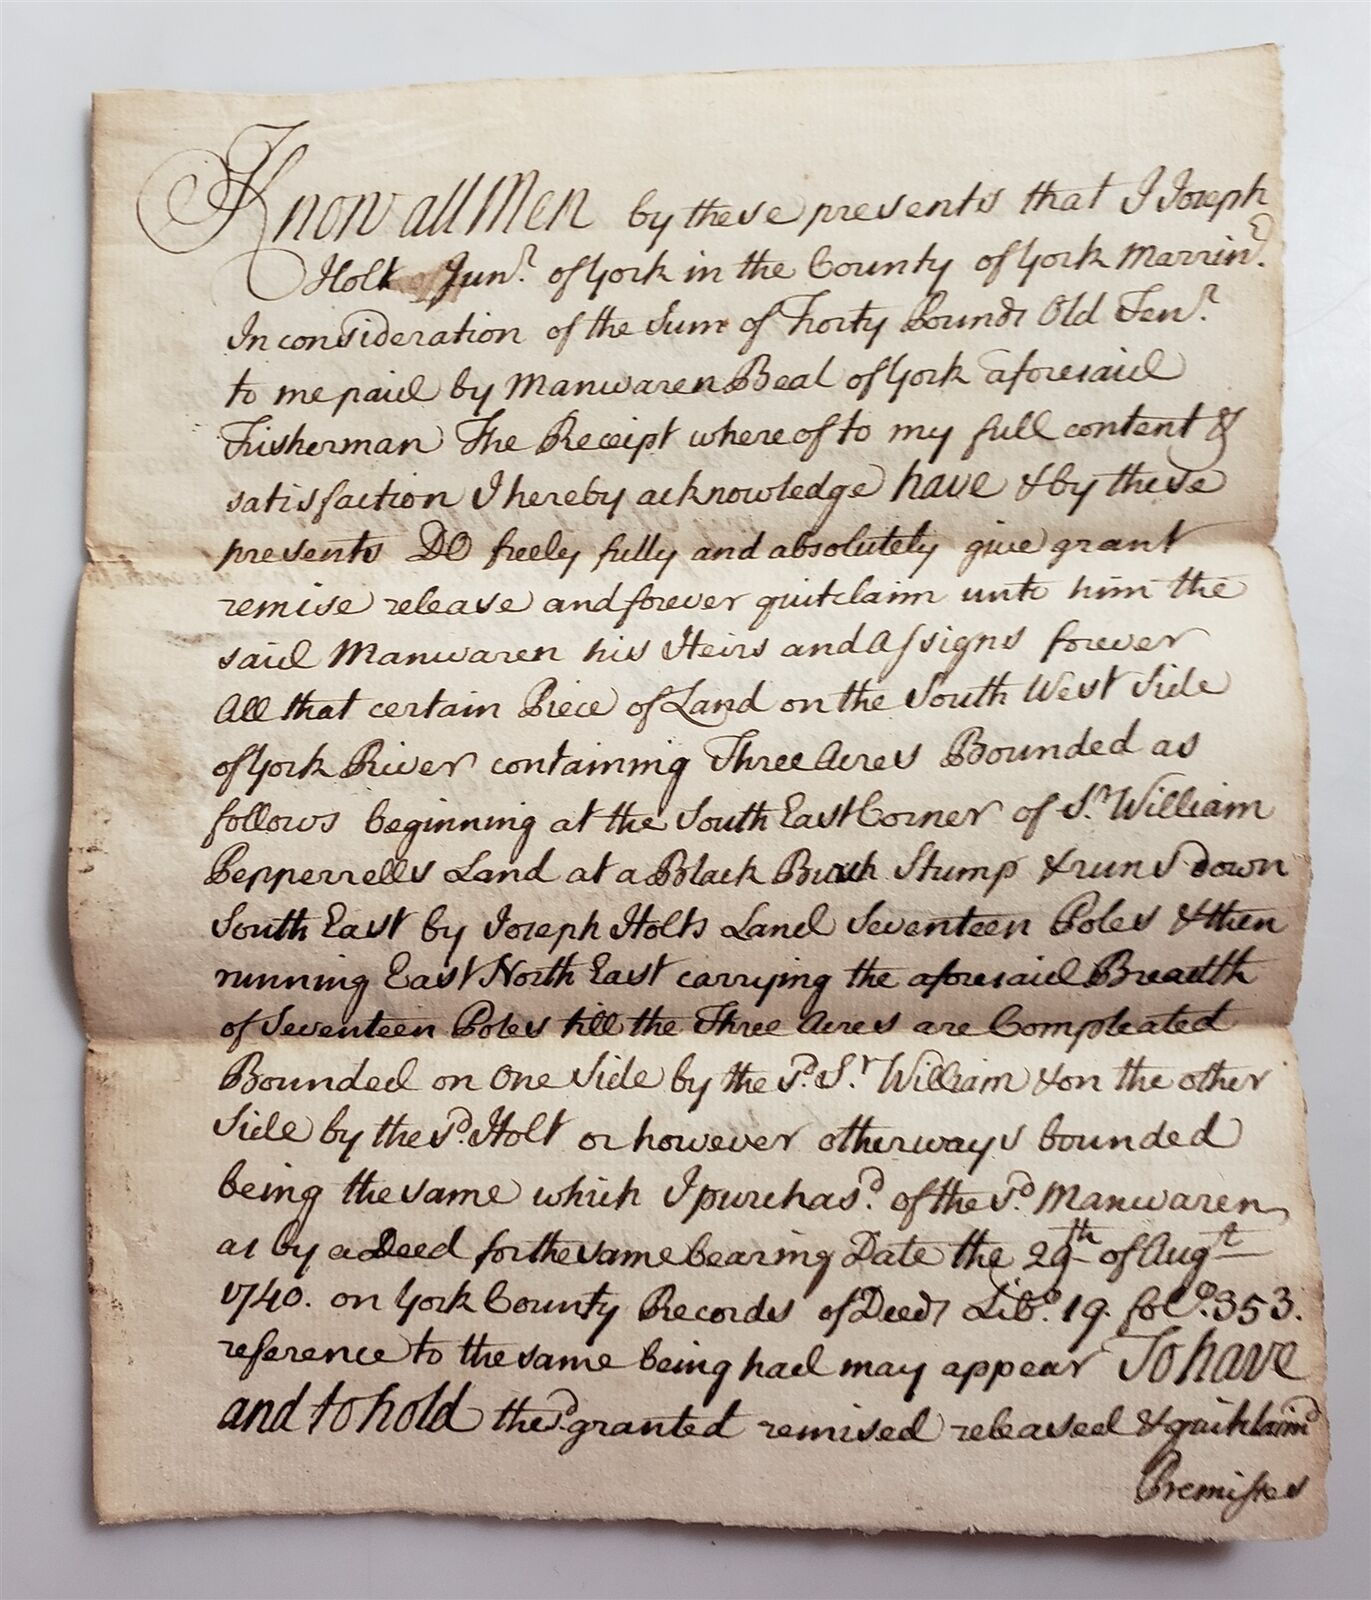 Know all Men by these presents that I Joseph
Holt Junr. of York in the County of York Marrind.
In consideration of the Sum of Forty Pounds Old Tenr.
to me paid by Manwaren Beal of York aforesaid
Fisherman The Receipt whereof to my full content &
satisfaction I hereby acknowledge have & by these
presents DO freely fully and absolutely give grant
remise release and forever quitclaim unto him the
said Manwaren his Heirs and Assigns forever
All that certain Piece of Land on the South West Side
of York River containing Three Acres Bounded as
follows beginning at the South East Corner of Sr. William
Pepperrells Land at a Black Burch Stump & runs down
South East by Joseph Holts Land Seventeen Poles & then
running East North East carrying the aforesaid Breadth
of Seventeen Poles till the Three Acres are Compleated
Bounded on One Side by the sd. Sr. William & on the other
Side by the sd. Holt or however otherways bounded
being the same which I purchasd. of the sd. Manwaren
as by a Deed for the same bearing Date the 29th of Augt
1740. on York County Records of Deeds Libo. 19. folo. 353.
reference to the same being had may appear To have
and to hold the sd granted remised released & quitclaimd
Premisses